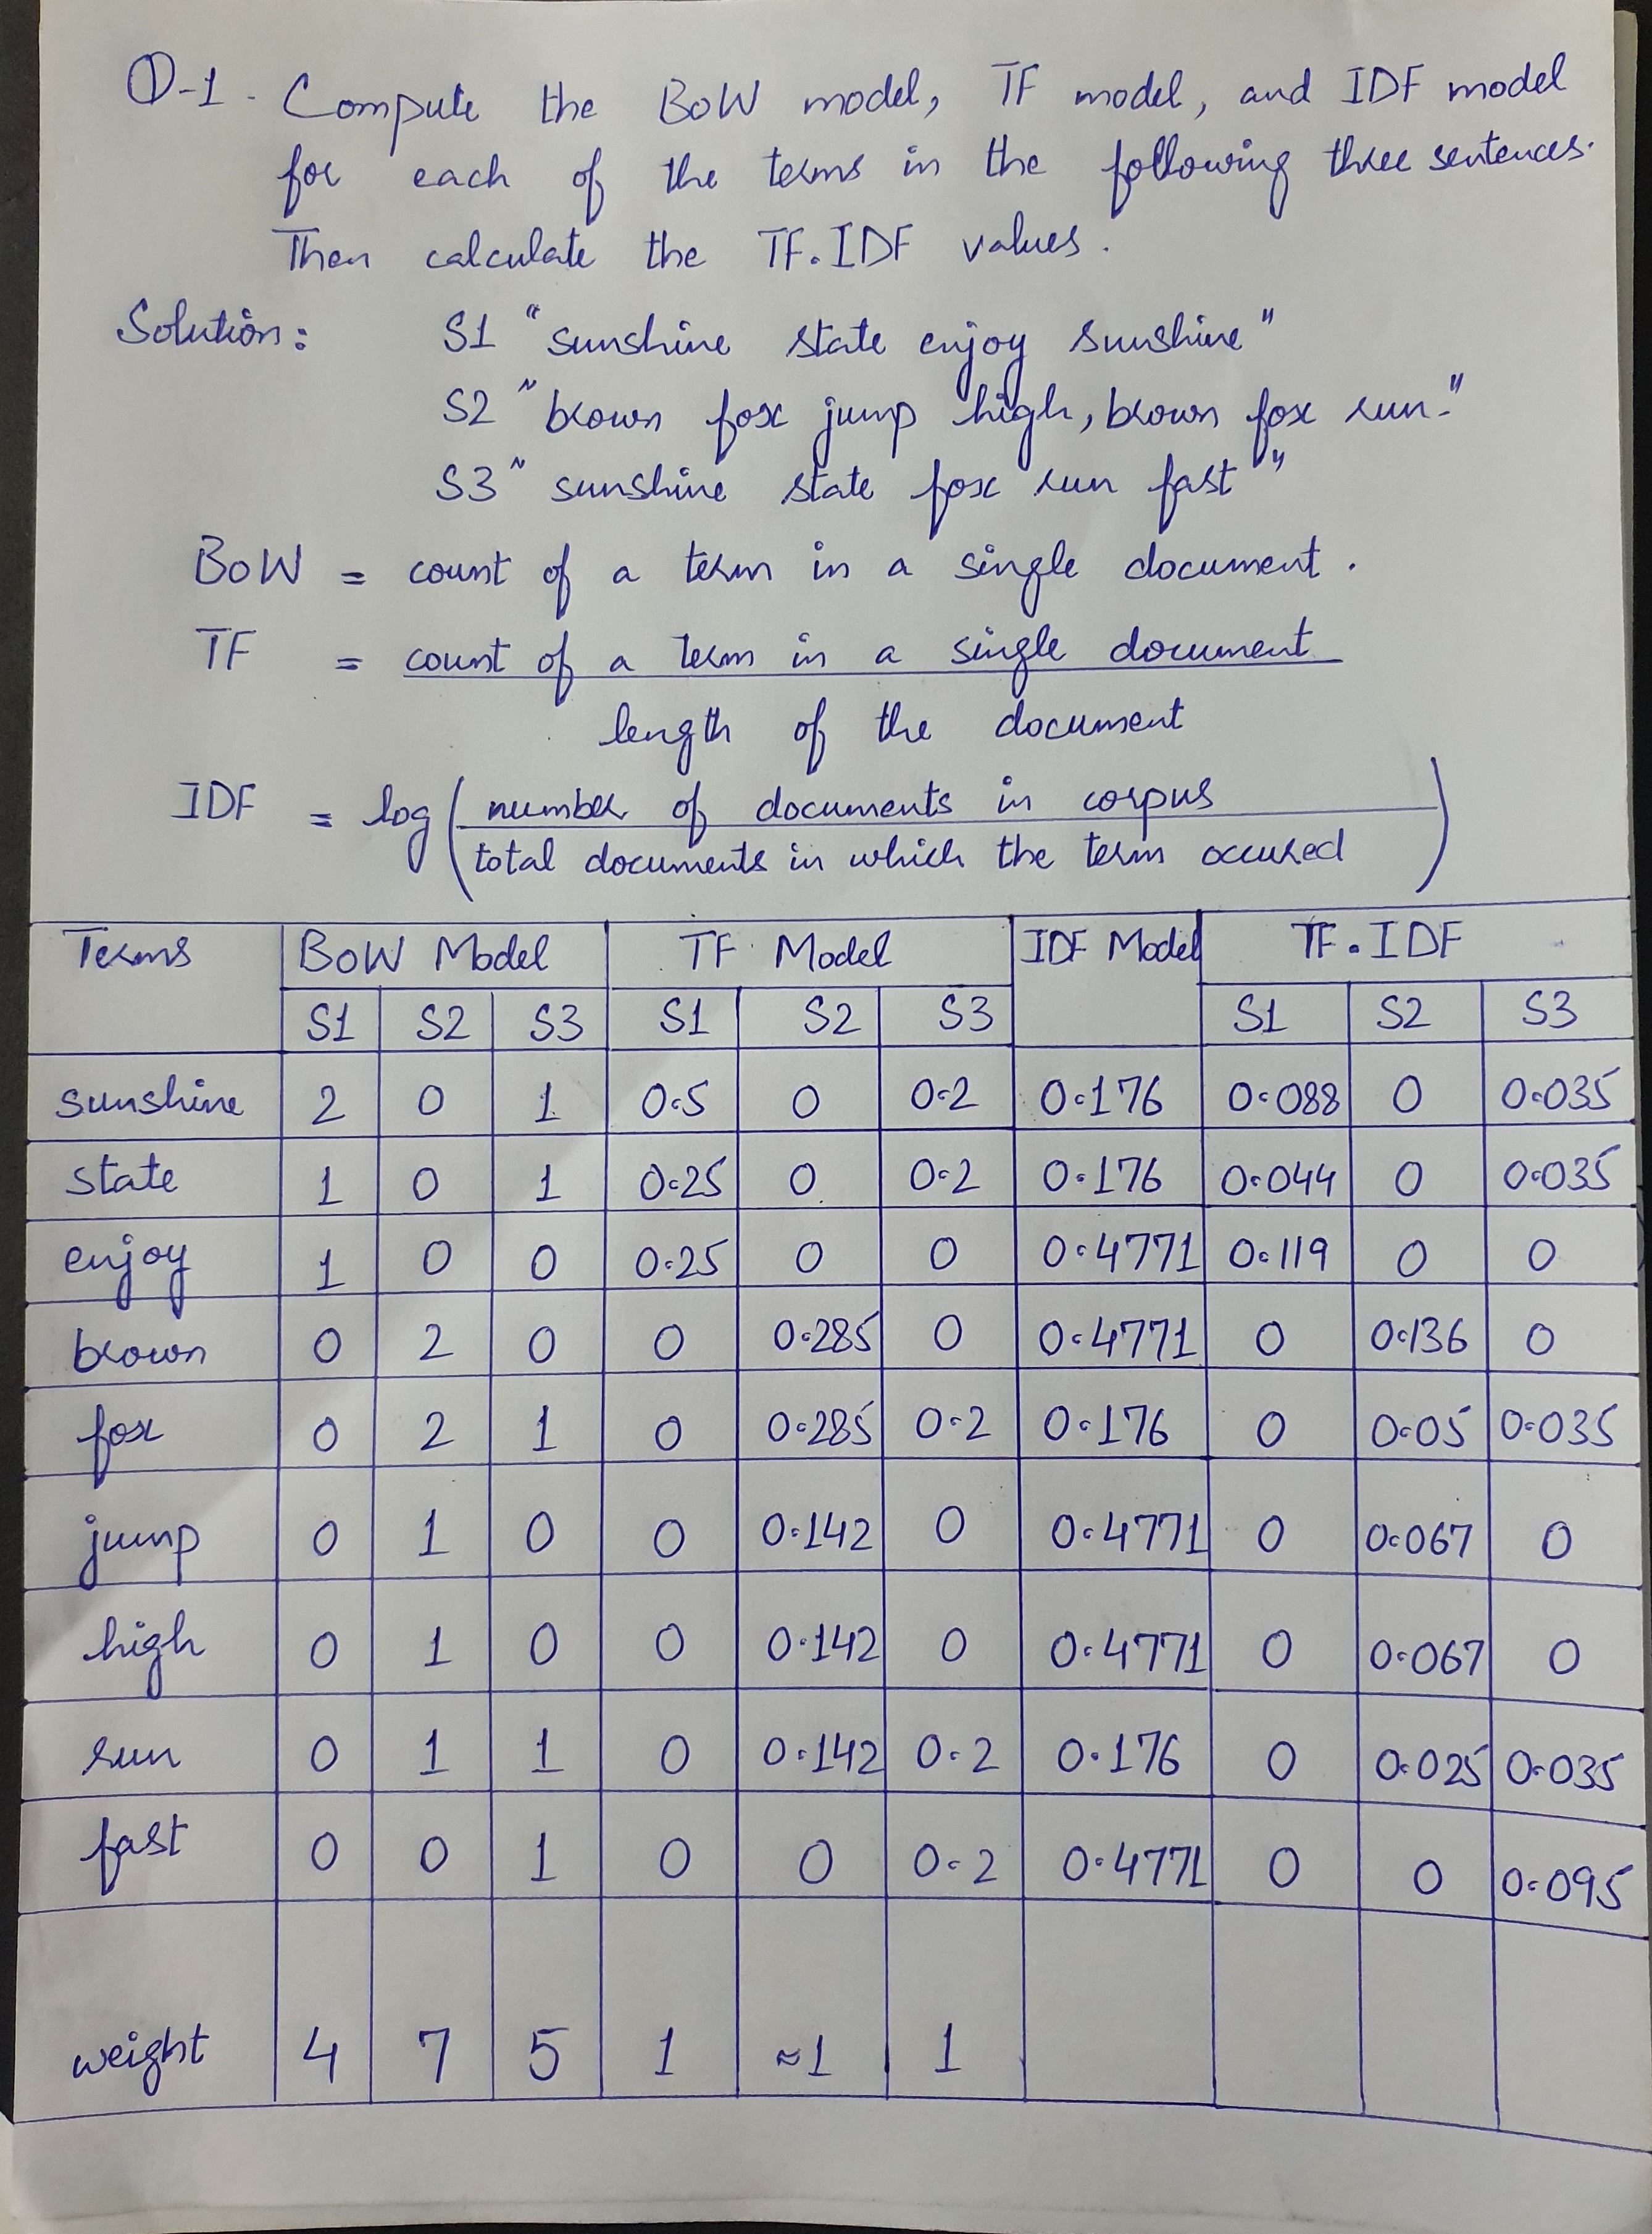 Q-1. Compute the BoW model, TF model, and IDF model
for each of the terms in the following three sentences.
Then calculate the TF.IDF values.
Solution: S1 "sunshine state enjoy sunshine"
S2 "brown fox jump high, brown fox run."
S3 "sunshine state fox run fast"
BoW = count of a term in a single document.
TF = count of a term in a single document
length of the document
IDF = log ( number of documents in corpus
total documents in which the term occured )
Terms BoW Model TF Model IDF Model TF.IDF
S1 S2 S3 S1 S2 S3 S1 S2 S3
sunshine 2 0 1 0.5 0 0.2 0.176 0.088 0 0.035
state 1 0 1 0.25 0 0.2 0.176 0.044 0 0.035
enjoy 1 0 0 0.25 0 0 0.4771 0.119 0 0
brown 0 2 0 0 0.285 0 0.4771 0 0.136 0
fox 0 2 1 0 0.285 0.2 0.176 0 0.05 0.035
jump 0 1 0 0 0.142 0 0.4771 0 0.067 0
high 0 1 0 0 0.142 0 0.4771 0 0.067 0
run 0 1 1 0 0.142 0.2 0.176 0 0.025 0.035
fast 0 0 1 0 0 0.2 0.4771 0 0 0.095
weight 4 7 5 1 ≈1 1